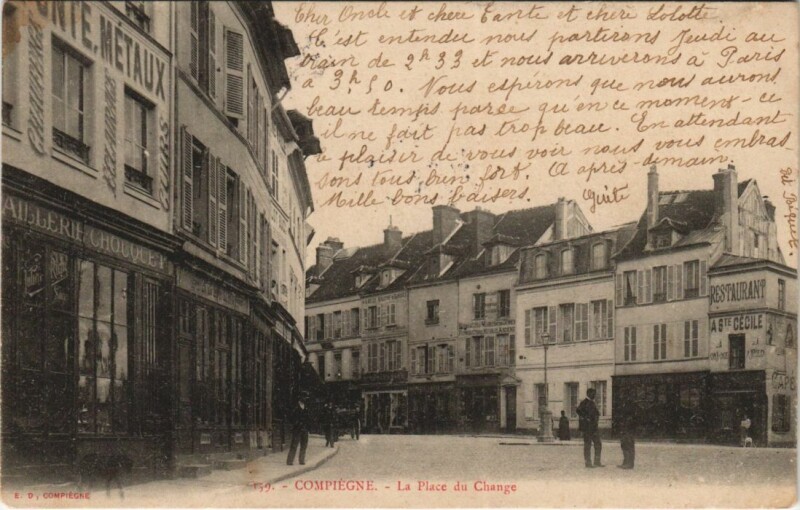 Cher Oncle et chère Tante et chère Lolotte.
C'est entendu nous partirons Jeudi au
train de 2h 33 et nous arriverons à Paris
à 3h,50. Nous espérons que nous aurons
beau temps parce qu'en ce moment-ce
il ne fait pas trop beau. En attendant
le plaisir de vous voir nous vous embras-
sons tous bien fort. A après-demain
Mille bons baisers.
Guite
FONTE, MÉTAUX
CHAUFFAGE
AILLERIE CHOUQUET
RESTAURANT
A STE CÉCILE
CAFÉ
159. - COMPIÈGNE. - La Place du Change
E. D, COMPIÈGNE